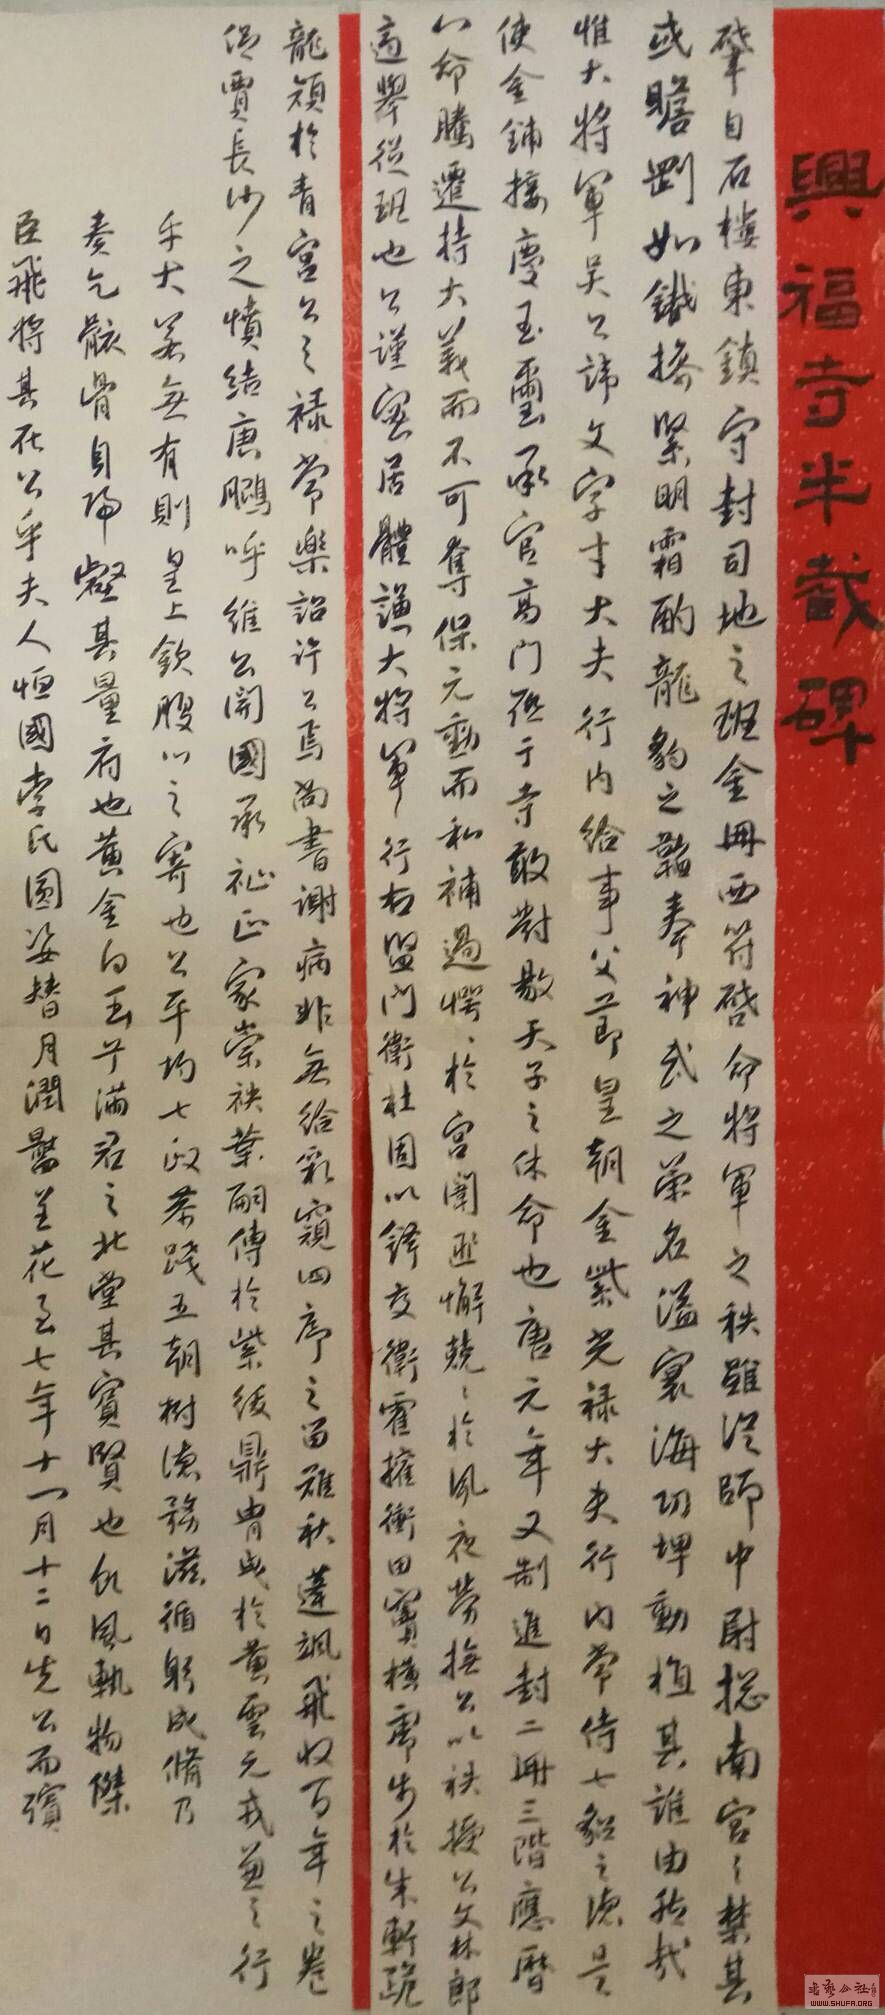 興福寺半截碑
肇自石樓東鎮守封司地之班金冊西符啓命將軍之秩雖漢師中尉摠南宮之禁其
或瞻劉如鐵摛緊明霜酌龍豹之韜奉神武之策名溢寰海功埤動植其誰由然哉
惟大將軍吴公諱文字才大夫行內給事父節皇朝金紫光祿大夫行內常侍七貂之德是
使金鋪接慶玉璽承官高門啓于寺敢對敭天子之休命也唐元年又制進封二冊三階應曆
以命騰遷持大義而不可奪保元勳而私補過愕〻於宮闈匪懈兢〻於夙夜勞撫公以秩授公文林郎
適舉從班也公謹密居體謙大將軍行右監門衛杜固以鐸交衛霍擁衡田竇橫虎步於朱軒跪
龍頷於青宮公之祿常樂詔許公焉尚書謝病非無給彩窺四序之留難秋蓬颯飛收百年之卷
促賈長沙之憤結唐鵬呼維公開國承祉正家崇袂葉嗣傳於紫綬鼎胄咸於黃雲元戎兼之行
乎大若無有則皇上欽股以之寄也公平均七政恭踐五朝樹德務滋循躬成脩乃
奏乞骸骨自歸壑其量府也黃金白玉以滿君之北堂其賓賢也飲風軌物傑
臣飛將其在公乎夫人恒國李氏圓姿替月潤臉呈花至七年十一月十二日先公而殯
WWW.SHUFA.ORG